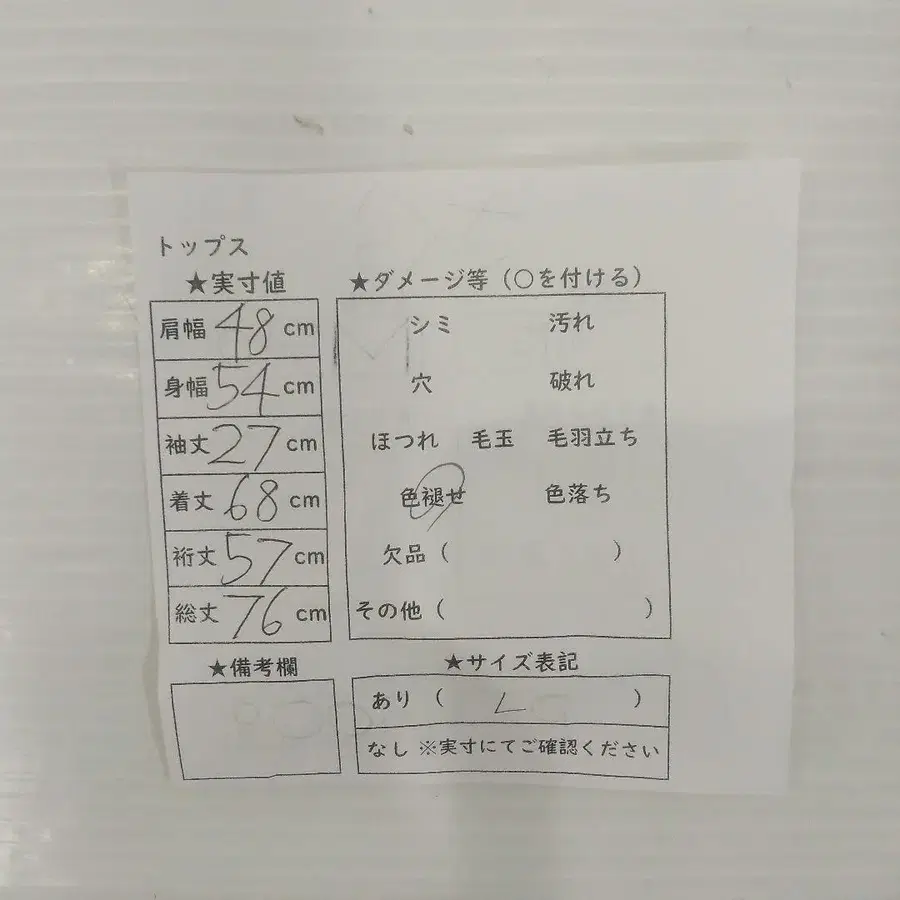 トップス
★実寸値
肩幅 48 cm
身幅 54 cm
袖丈 27 cm
着丈 68 cm
裄丈 57 cm
総丈 76 cm
★ダメージ等（○を付ける）
シミ 汚れ
穴 破れ
ほつれ 毛玉 毛羽立ち
色褪せ 色落ち
欠品（ ）
その他（ ）
★備考欄
★サイズ表記
あり（ L ）
なし ※実寸にてご確認ください